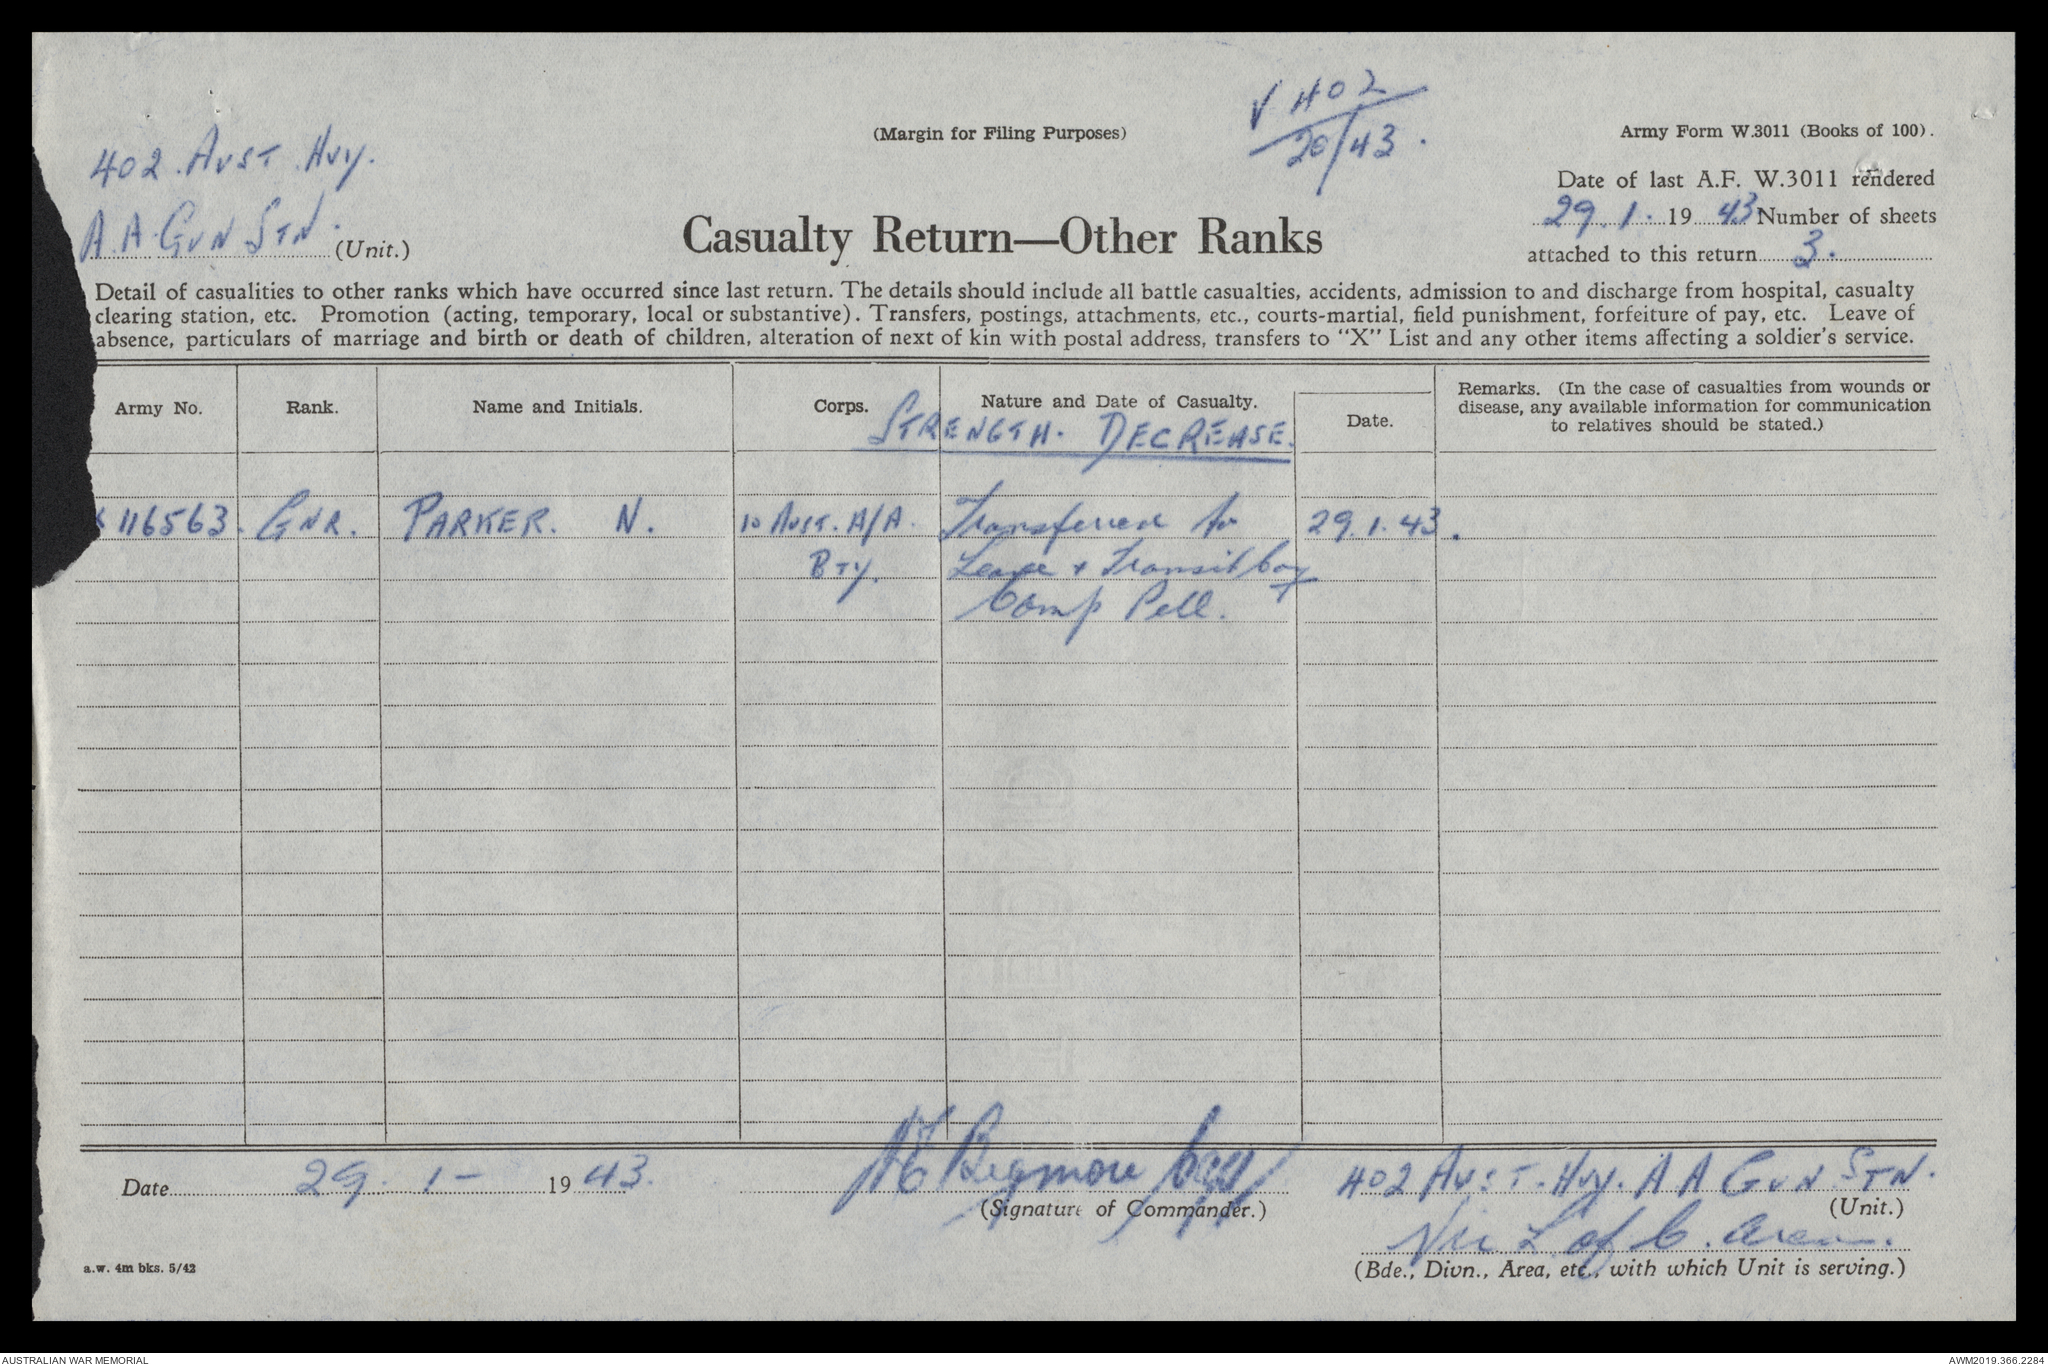 V 402
20/43.
(Margin for Filing Purposes)
Army Form W.3011 (Books of 100).
402 . AUST . HVY.
A.A. GUN STN. (Unit.)
Date of last A.F. W.3011 rendered
29. 1. 1943 Number of sheets
attached to this return 3.
Casualty Return—Other Ranks
Detail of casualities to other ranks which have occurred since last return. The details should include all battle casualties, accidents, admission to and discharge from hospital, casualty
clearing station, etc. Promotion (acting, temporary, local or substantive). Transfers, postings, attachments, etc., courts-martial, field punishment, forfeiture of pay, etc. Leave of
absence, particulars of marriage and birth or death of children, alteration of next of kin with postal address, transfers to "X" List and any other items affecting a soldier's service.
Army No. Rank. Name and Initials. Corps. Nature and Date of Casualty. Date. Remarks. (In the case of casualties from wounds or
disease, any available information for communication
to relatives should be stated.)
STRENGTH. DECREASE.
116563. GNR. PARKER. N. 10 AUST. A/A. Transferred to 29.1.43.
BTY. Leave + Transit
Camp Pell.
Date 29. 1 - 1943. Bigmore
(Signature of Commander.)
402 AUST. HVY. A A GUN STN.
(Unit.)
Vic L of C. Area.
(Bde., Divn., Area, etc., with which Unit is serving.)
a.w. 4m bks. 5/42
AUSTRALIAN WAR MEMORIAL
AWM2019.366.2284